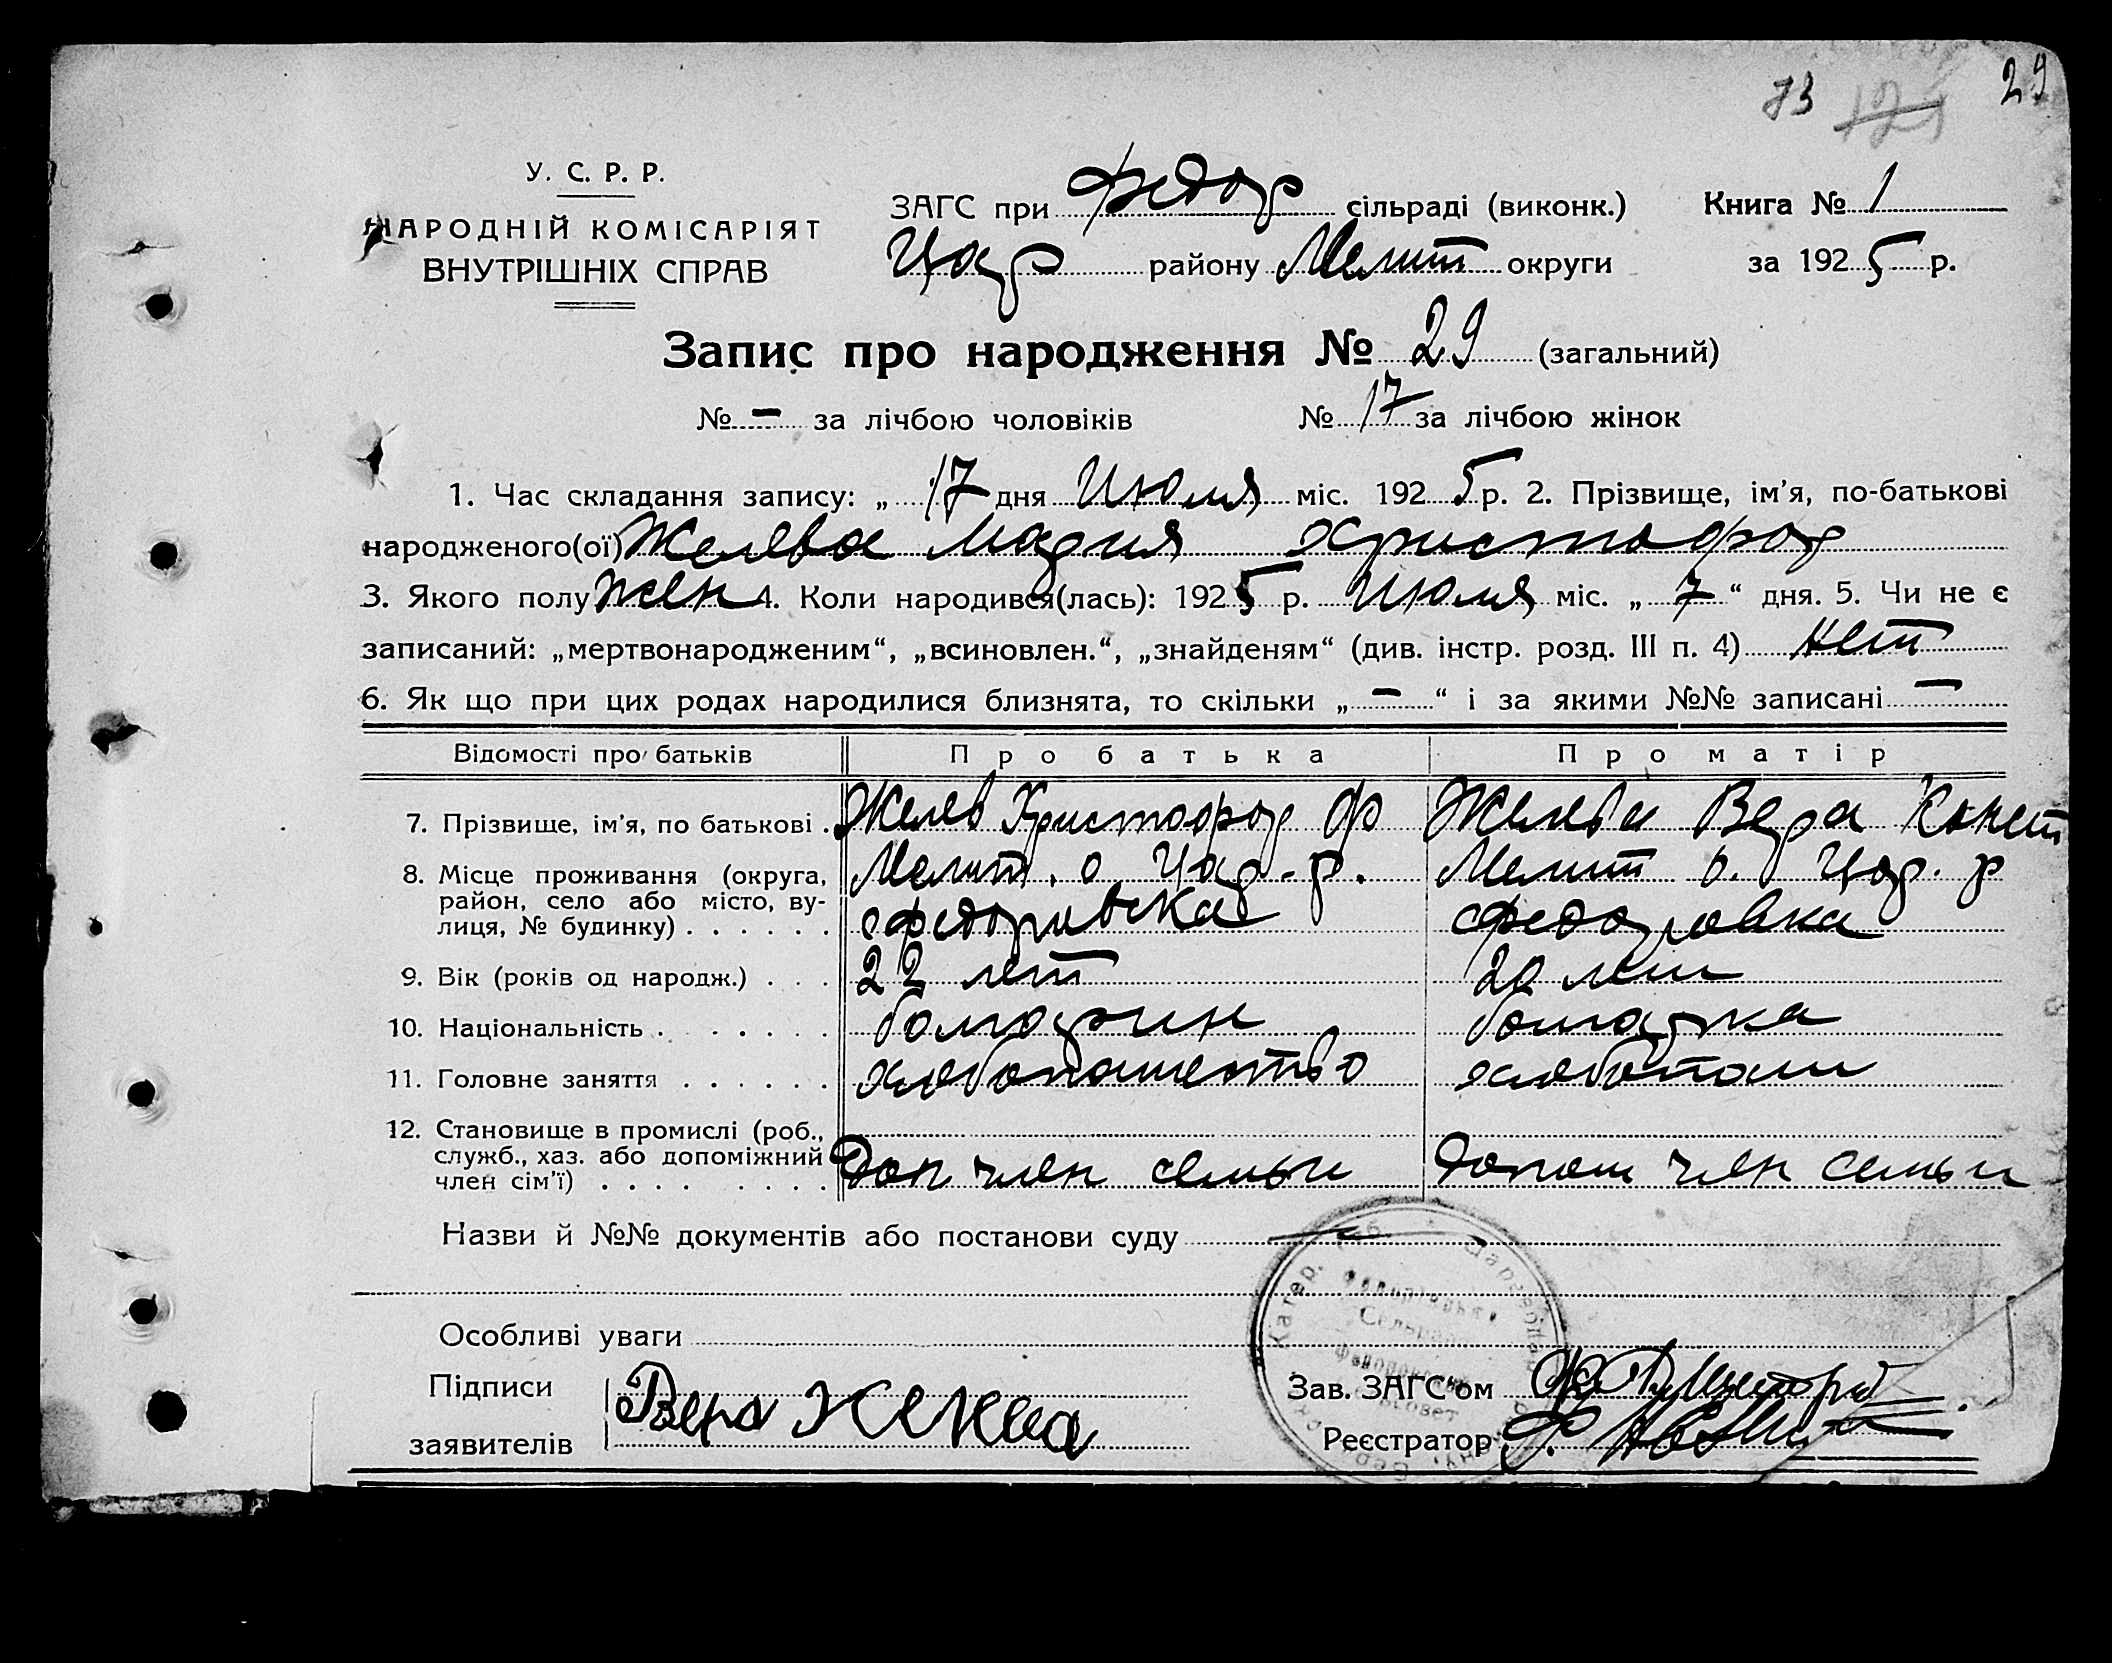 73 121 29
У. С. Р. Р.
НАРОДНІЙ КОМІСАРІЯТ
ВНУТРІШНІХ СПРАВ
ЗАГС при Федор сільраді (виконк.) Книга № 1
Цар району Мелит округи за 1925 р.
Запис про народження № 29 (загальний)
№ - за лічбою чоловіків № 17 за лічбою жінок
1. Час складання запису: „17 дня Июля міс. 1925 р. 2. Прізвище, ім’я, по-батькові
народженого(ої) Желева Мария Христофор
3. Якого полу жен 4. Коли народився(лась): 1925 р. Июля міс. „7“ дня. 5. Чи не є
записаний: „мертвонародженим“, „всиновлен.“, „знайденям“ (див. інстр. розд. III п. 4) нет
6. Як що при цих родах народилися близнята, то скільки „-“ і за якими №№ записані -
Відомості про батьків Про батька Про матір
7. Прізвище, ім’я, по батькові . Желев Христофор Ф Желева Вера Конст
8. Місце проживання (округа, Мелит. о Цар. р. Мелит о. Цар. р
район, село або місто, ву-
лиця, № будинку) . . . . . . с Федоровка с Федоровка
9. Вік (років од народж.) . . . 22 лет 20 лет
10. Національність . . . . . . болгарин болгарка
11. Головне заняття . . . . . . хлебопашество хлебопаш
12. Становище в промислі (роб.,
служб., хаз. або допоміжний
член сім’ї) . . . . . . . . Доп член семьи Допом член семьи
Назви й №№ документів або постанови суду -
Особливі уваги
Підписи
заявителів Вера Желева
Зав. ЗАГС’ом
Реєстратор